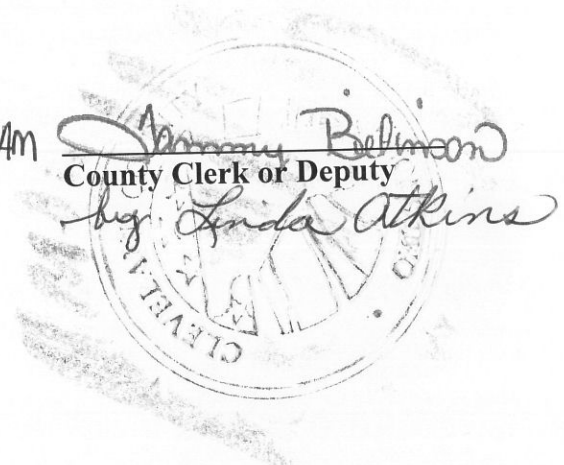 AM Tammy Belinson
County Clerk or Deputy
by Linda Atkins
CLEVELA